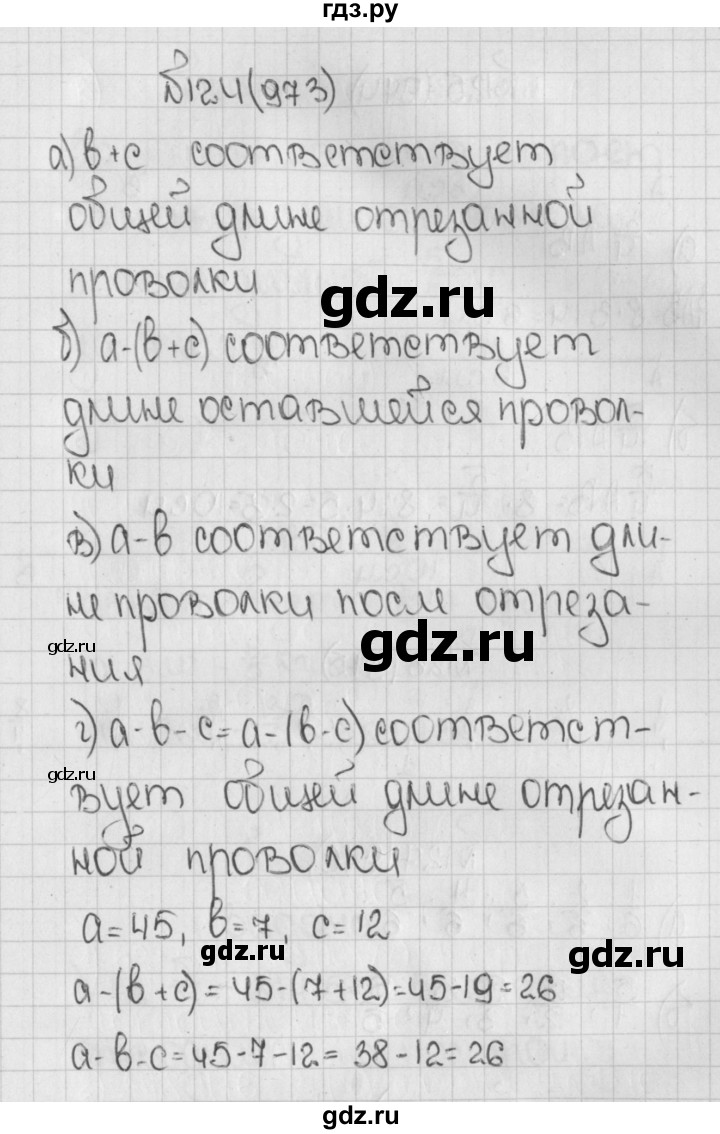 гдз.ру
№124(973)
а) в+с соответствует
общей длине отрезанной
проволки
gdz.ru
б) а-(в+с) соответствует
длине оставшейся провол-
ки
в) а-в соответствует дли-
не проволки после отреза-
gdz.ru
gdz.ru
ния
г) а-в-с=а-(в-с) соответст-
gdz.ru
вует общей длине отрезан-
ной проволки
а=45, в=7, с=12
gdz.ru
gdz.ru
а-(в+с)=45-(7+12)=45-19=26
а-в-с=45-7-12=38-12=26
gdz.ru